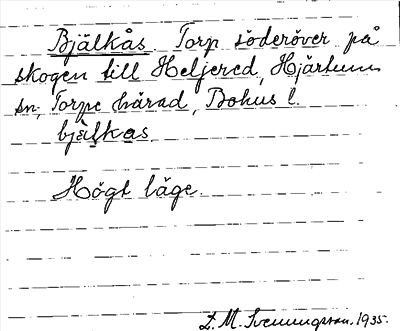 Bjälkås. Torp söderöver på
skogen till Heljered, Hjärtums
sn, Torpe härad, Bohus l.
bjälkas.
Högt läge.
L. M. Svenungsson. 1935.